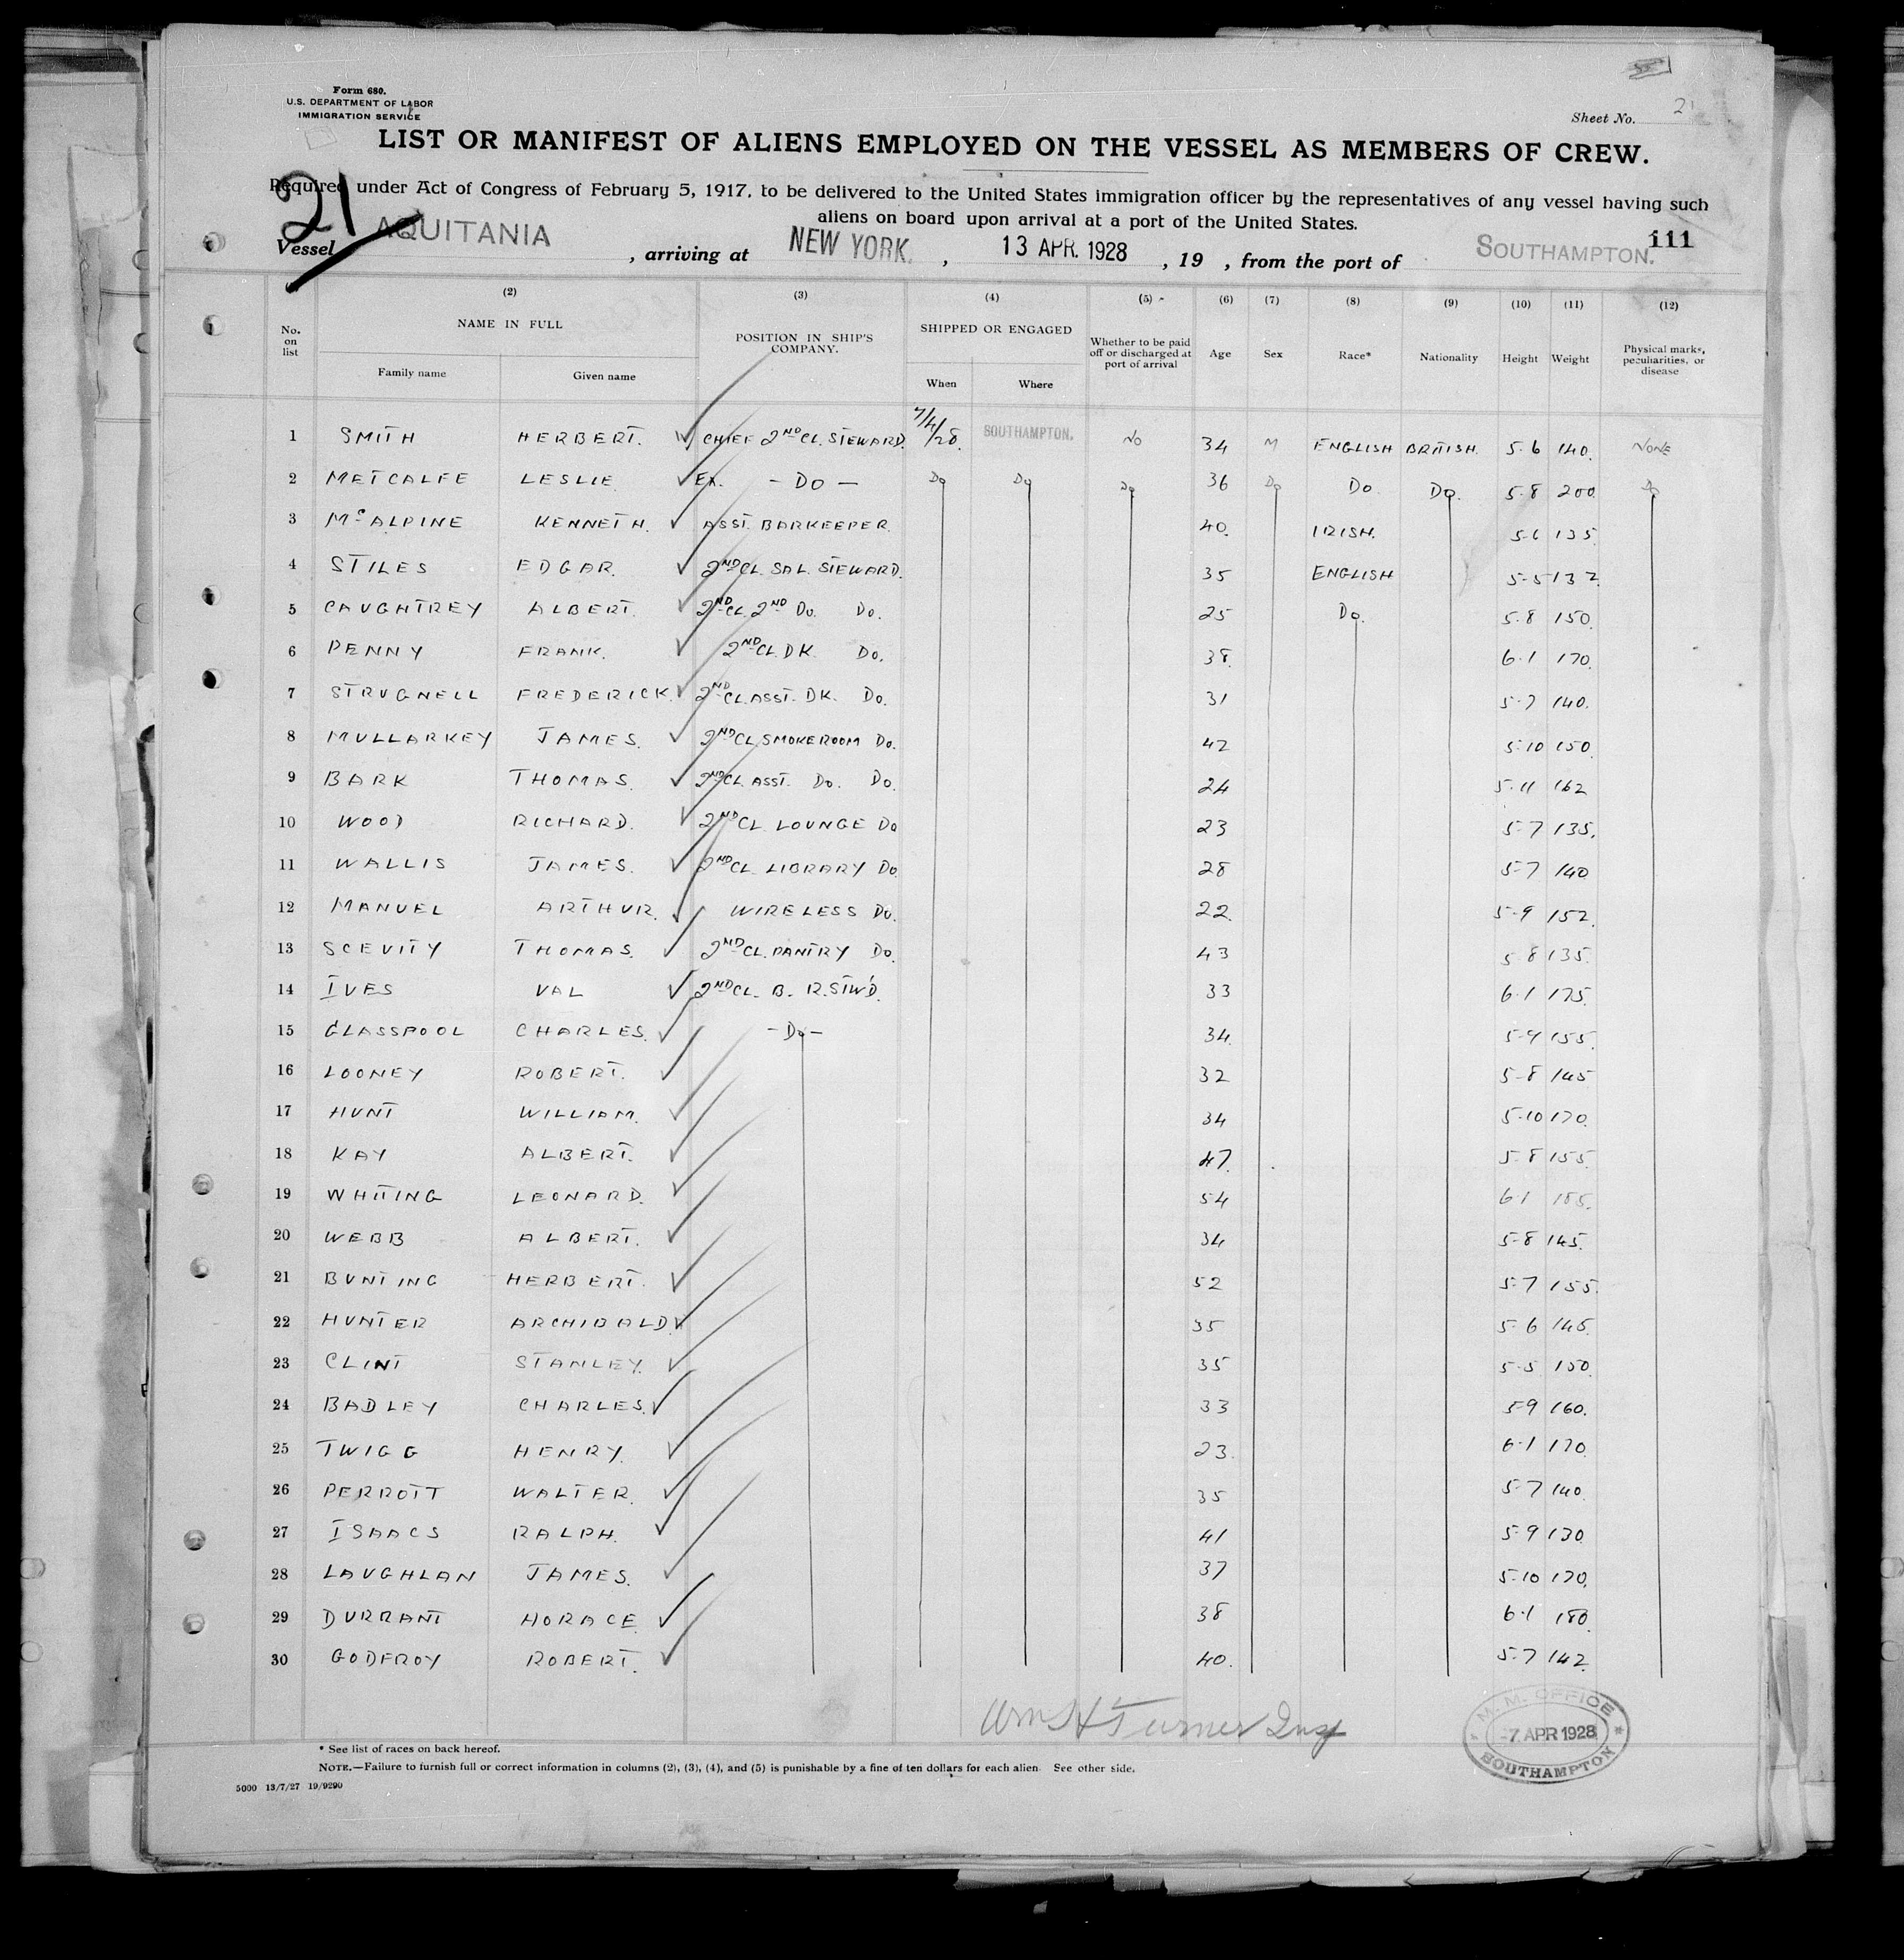 Form 680.
U.S. DEPARTMENT OF LABOR
IMMIGRATION SERVICE
Sheet No. 21
LIST OR MANIFEST OF ALIENS EMPLOYED ON THE VESSEL AS MEMBERS OF CREW.
Required under Act of Congress of February 5, 1917, to be delivered to the United States immigration officer by the representatives of any vessel having such
aliens on board upon arrival at a port of the United States.
21
111
Vessel AQUITANIA, arriving at NEW YORK., 13 APR. 1928, 19 , from the port of SOUTHAMPTON.
(2) (3) (4) (5) (6) (7) (8) (9) (10) (11) (12)
No. on list NAME IN FULL POSITION IN SHIP'S COMPANY. SHIPPED OR ENGAGED Whether to be paid off or discharged at port of arrival Age Sex Race* Nationality Height Weight Physical marks, peculiarities, or disease
Family name Given name When Where
1 SMITH HERBERT. CHIEF 2ND CL. STEWARD. 7/4/28. SOUTHAMPTON. NO 34 M ENGLISH BRITISH. 5.6 140. NONE
2 METCALFE LESLIE. EX. - DO - DO DO DO 36 DO DO DO. 5.8 200. DO
3 McALPINE KENNETH. ASST. BARKEEPER. 40. IRISH. 5.6 135.
4 STILES EDGAR. 2ND CL. SAL. STEWARD. 35 ENGLISH 5-5 132.
5 CAUGHTREY ALBERT. 2ND CL. 2ND DO. DO. 25 DO. 5.8 150.
6 PENNY FRANK. 2ND CL. DK. DO. 38. 6.1 170.
7 STRUGNELL FREDERICK. 2ND CL. ASST. DK. DO. 31 5.7 140.
8 MULLARKEY JAMES. 2ND CL SMOKEROOM DO. 42 5.10 150.
9 BARK THOMAS. 2ND CL. ASST. DO. DO. 24 5.11 162
10 WOOD RICHARD. 2ND CL. LOUNGE DO 23 5-7 135.
11 WALLIS JAMES. 2ND CL. LIBRARY DO. 28 5-7 140
12 MANUEL ARTHUR. WIRELESS DO. 22. 5-9 152.
13 SCEVITY THOMAS. 2ND CL. PANTRY DO. 43 5-8 135.
14 IVES VAL 2ND CL. B. R. STW'D. 33 6.1 175.
15 GLASSPOOL CHARLES. - DO - 34. 5-9 155.
16 LOONEY ROBERT. 32 5-8 145
17 HUNT WILLIAM. 34 5-10 170.
18 KAY ALBERT. 47. 5-8 155.
19 WHITING LEONARD. 54 6.1 185.
20 WEBB ALBERT. 34 5-8 145.
21 BUNTING HERBERT. 52 5-7 155.
22 HUNTER ARCHIBALD. 35 5-6 145.
23 CLINT STANLEY. 35 5-5 150
24 BADLEY CHARLES. 33 5-9 160.
25 TWIGG HENRY. 23. 6.1 170.
26 PERROTT WALTER. 35 5-7 140.
27 ISAACS RALPH. 41 5-9 130.
28 LAUGHLAN JAMES. 37 5-10 170.
29 DURRANT HORACE. 38 6.1 180.
30 GODFROY ROBERT. 40. 5-7 142.
Wm H Turner Insp
M.M. OFFICE
-7 APR 1928
SOUTHAMPTON
* See list of races on back hereof.
NOTE.—Failure to furnish full or correct information in columns (2), (3), (4), and (5) is punishable by a fine of ten dollars for each alien. See other side.
5000 13/7/27 19/9290